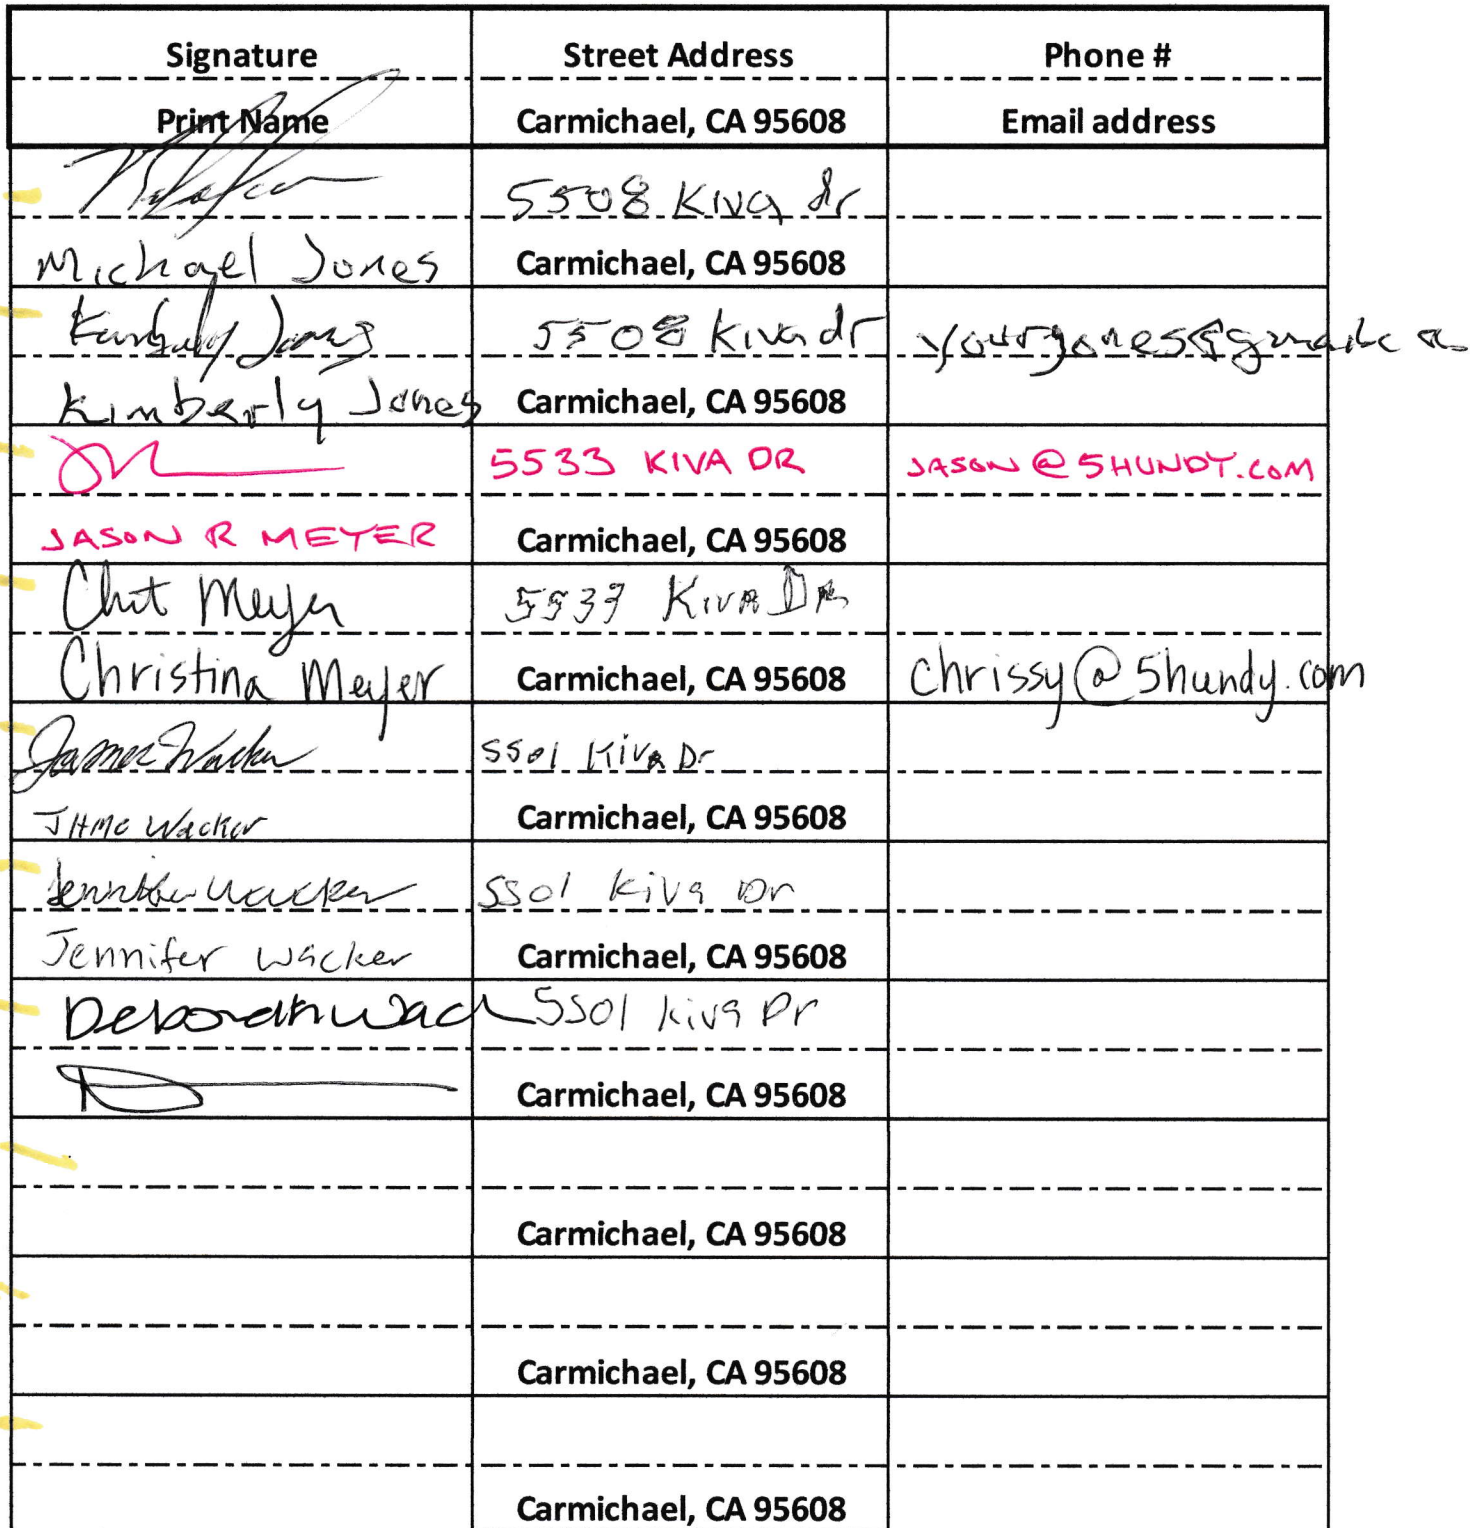 Signature Street Address Phone #
Print Name Carmichael, CA 95608 Email address
5508 Kiva dr
Michael Jones Carmichael, CA 95608
Kimberly Jones 5508 Kiva dr
Kimberly Jones Carmichael, CA 95608
5533 KIVA DR JASON@5HUNDY.COM
JASON R MEYER Carmichael, CA 95608
Meyer 5533 KIVA DR
Christina Meyer Carmichael, CA 95608 chrissy@5hundy.com
Wacker 5501 Kiva Dr
Wacker Carmichael, CA 95608
Jennifer Wacker 5501 Kiva Dr
Jennifer Wacker Carmichael, CA 95608
Deborah Wack 5501 Kiva Dr
Carmichael, CA 95608
Carmichael, CA 95608
Carmichael, CA 95608
Carmichael, CA 95608